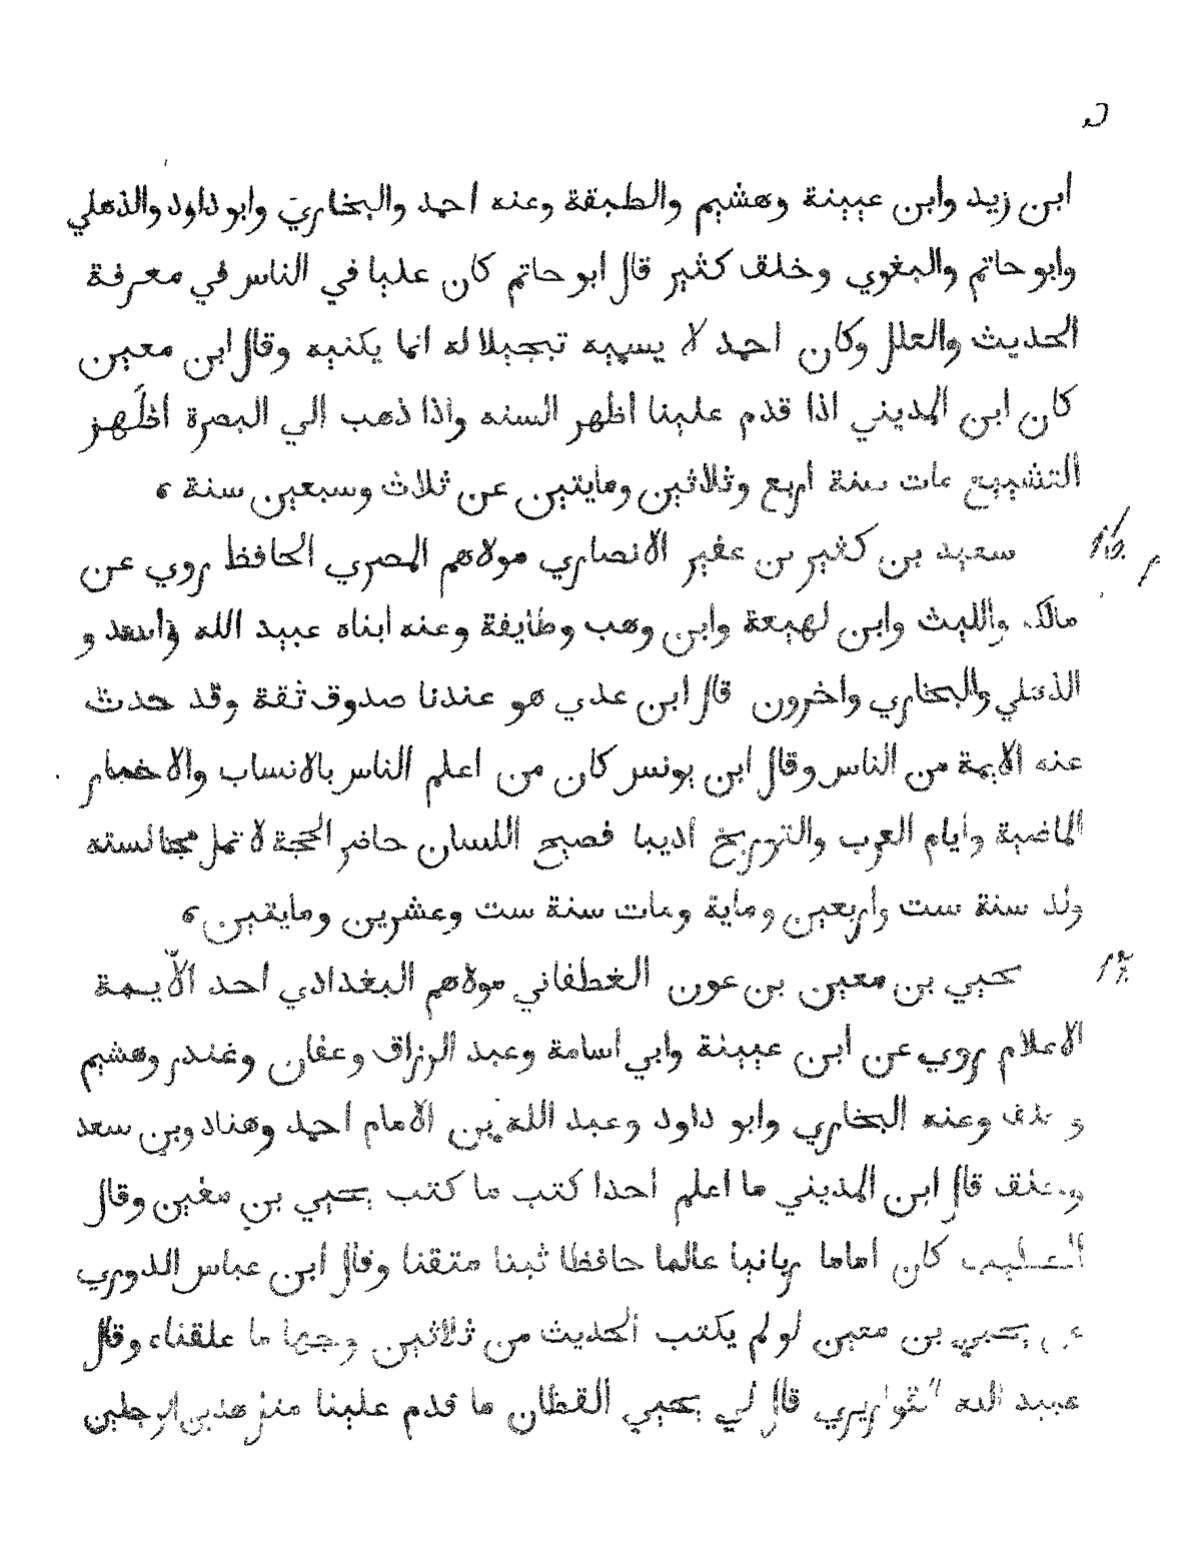 ابن زيد وابن عيينة وهشيم والطبقة وعنه احمد والبخاري وابو داود والذهلي
وابو حاتم والبغوي وخلق كثير قال ابو حاتم كان عليا في الناس في معرفة
الحديث والعلل وكان احمد لا يسميه تبجيلا له انما يكنيه وقال ابن معين
كان ابن المديني اذا قدم علينا اظهر السنه واذا ذهب الي البصرة اظهر
التشييع مات سنة اربع وثلاثين ومايتين عن ثلاث وسبعين سنة ه
سعيد بن كثير بن عفير الانصاري مولاهم المصري الحافظ روي عن
مالك والليث وابن لهيعة وابن وهب وطايفة وعنه ابناه عبيد الله واسعد و
الذهلي والبخاري واخرون قال ابن عدي هو عندنا صدوق ثقة وقد حدث
عنه الايمة من الناس وقال ابن يونس كان من اعلم الناس بالانساب والاخبار
الماضية وايام العرب والتوريخ اديبا فصيح اللسان حاضر الحجة لا تمل مجالسته
ولد سنة ست واربعين وماية ومات سنة ست وعشرين ومايتين ه
يحيي بن معين بن عون الغطفاني مولاهم البغدادي احد الايمة
الاعلام روي عن ابن عيينة وابي اسامة وعبد الرزاق وعفان وغندر وهشيم
و وعنه البخاري وابو داود وعبد الله بن الامام احمد وهناد وبن سعد
وخلق قال ابن المديني ما اعلم احدا كتب ما كتب يحيي بن معين وقال
الخطيب كان اماما ربانيا عالما حافظا ثبتا متقنا وقال ابن عباس الدوري
عن يحيي بن معين لو لم يكتب الحديث من ثلاثين وجها ما علقناه وقال
عبيد الله القواريري قال لي يحيي القطان ما قدم علينا مثل هذين الرجلين